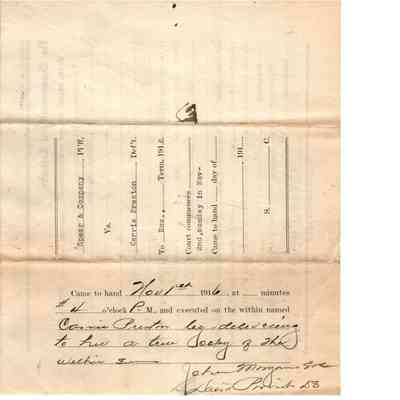 Spear & Company Pl'ff.
Vs.
Carrie Preston Def't.
To Nov., Term, 1916.
Court commences
2nd, Monday in Nov-
Came to hand day of
191
S. C.
Came to hand Nov 1st 1916, at minutes
4 o'clock P. M., and executed on the within named
Carrie Preston by delivering
to her a true Copy of the
within
John Morgan
David